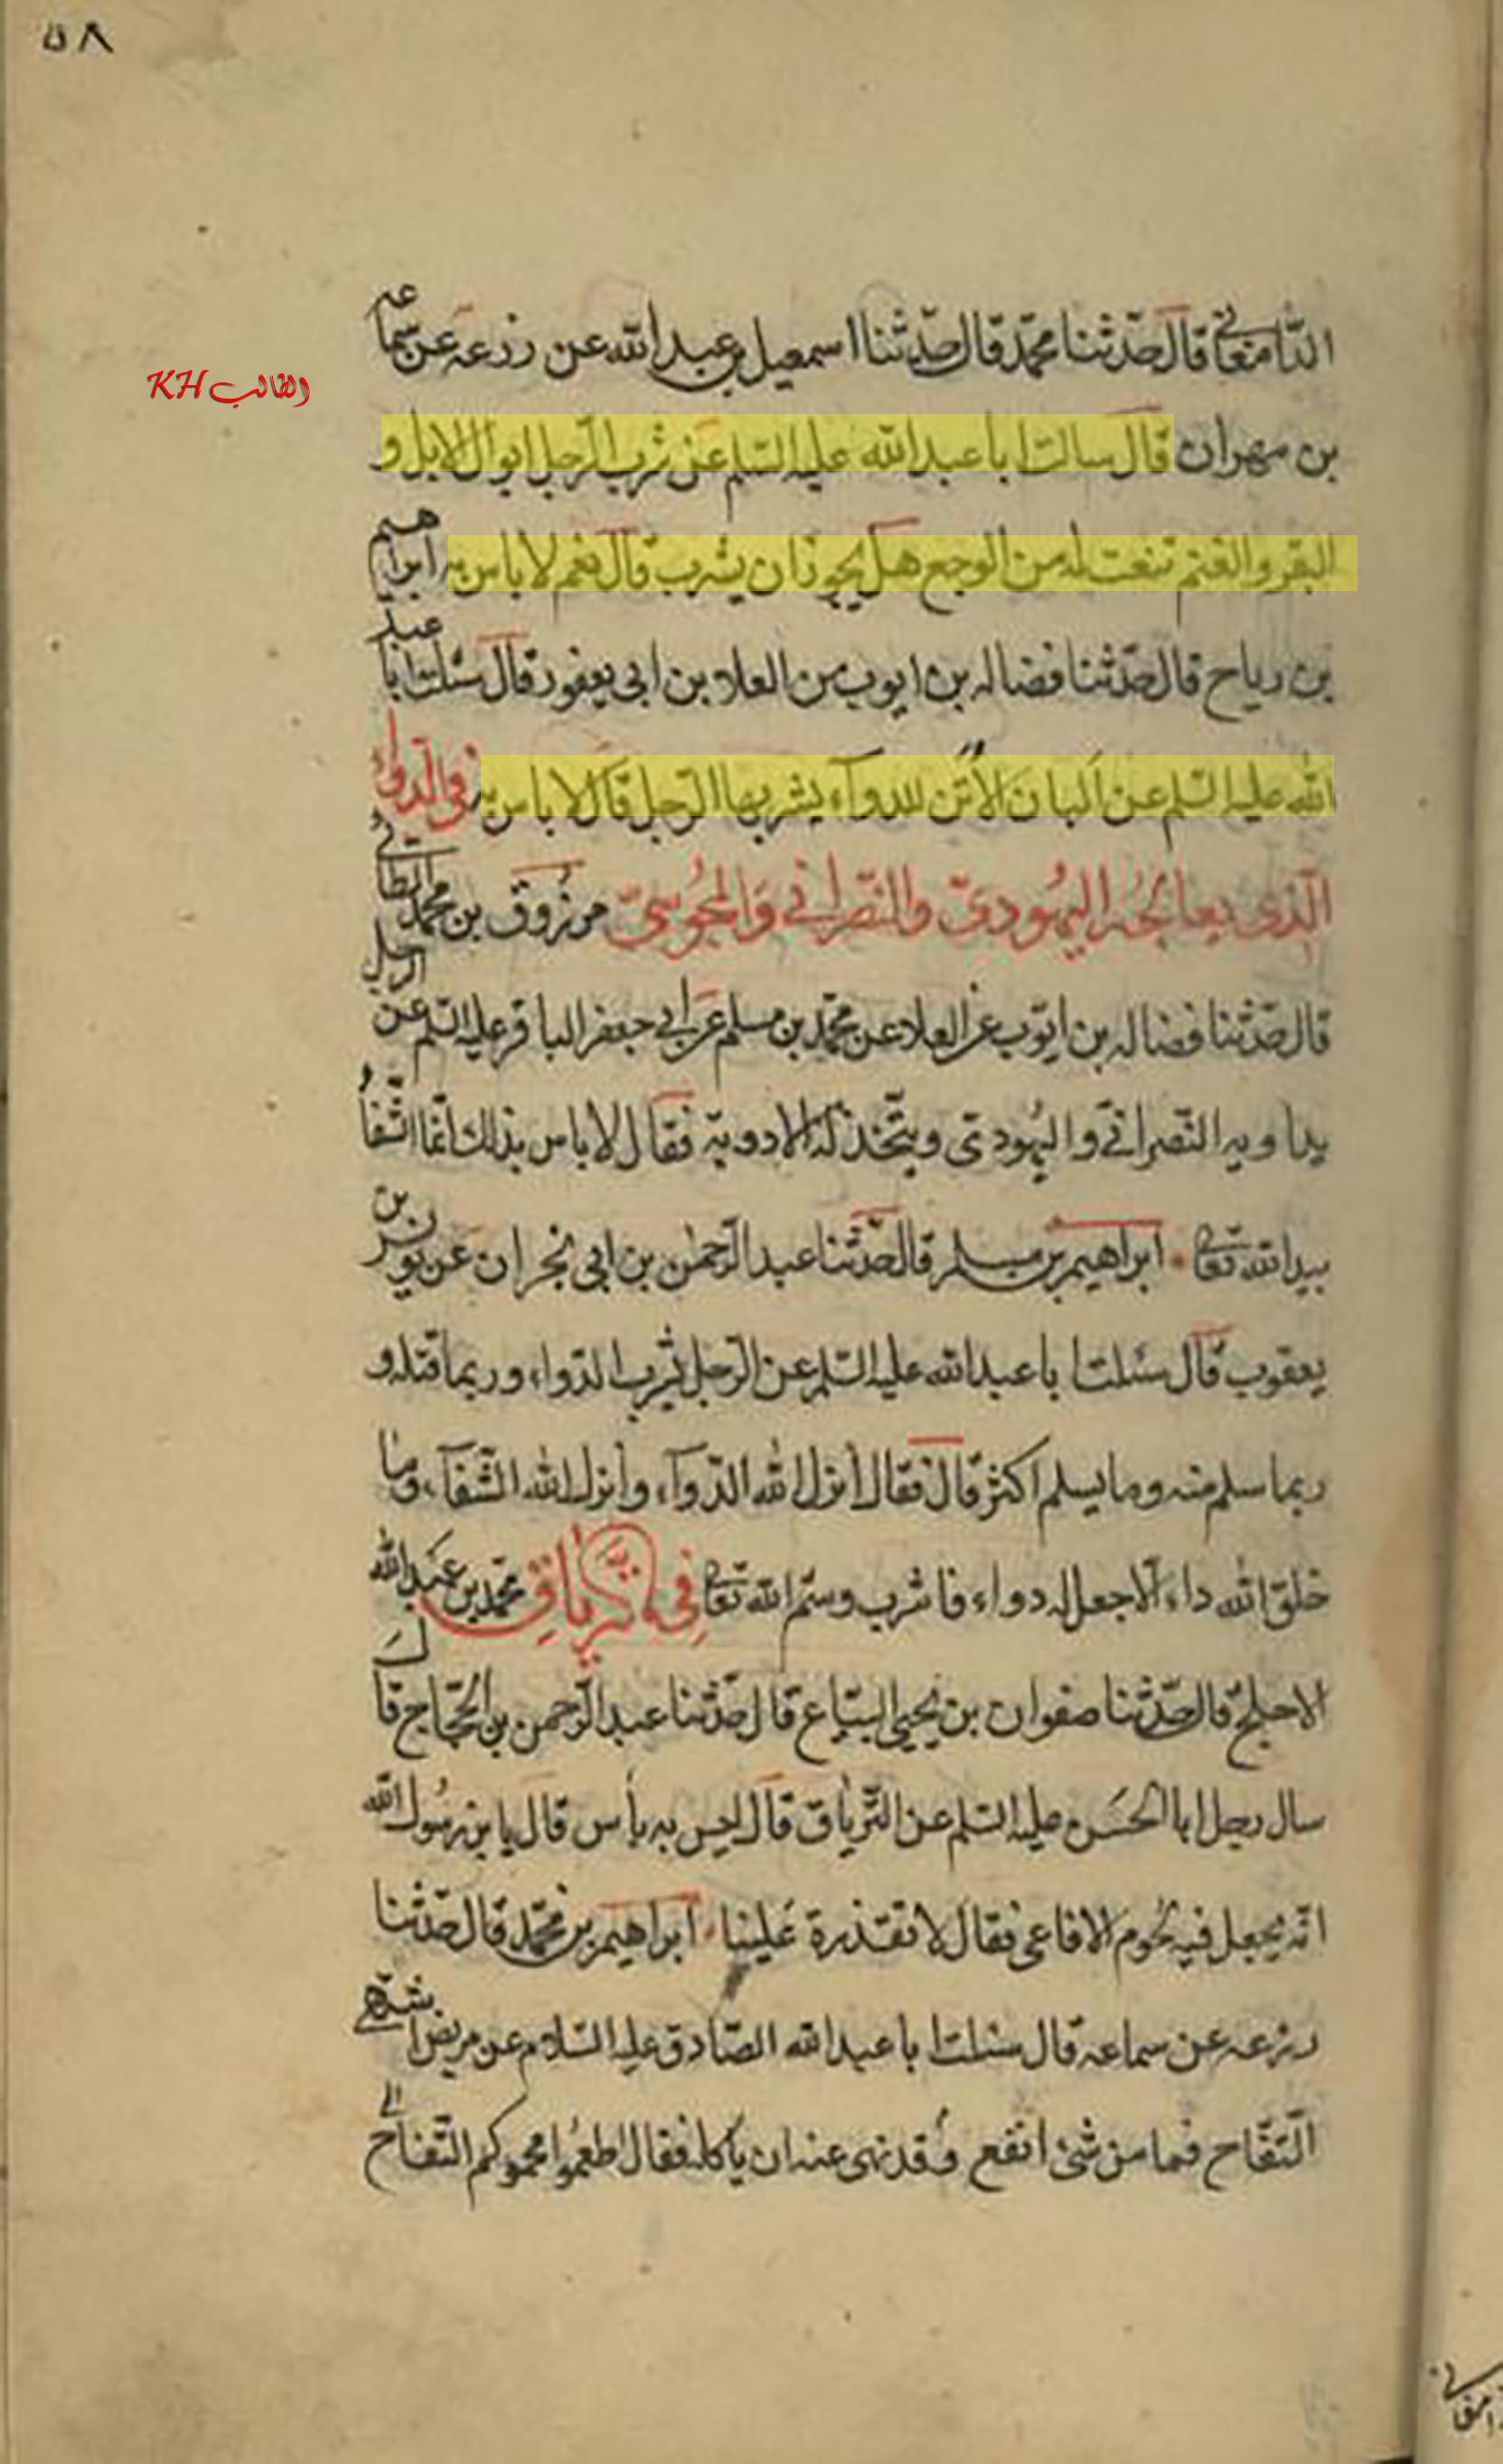 ٥٨
الدّامغاني قال حدّثنا محمّد قال حدّثنا اسمعيل بن عبد الله عن زرعه عن سماعه
الطالب KH
بن مهران قال سالت ابا عبدالله عليه السّلم عن شرب الرّجل ابوال الابل و
البقر والغنم تنعت له من الوجع هل يجوز ان يشرب قال نعم لا باس به ابراهيم
بن رياح قال حدّثنا فضاله بن ايوب عن العلا بن ابى يعفور قال سئلت ابا عبد
الله عليه السّلم عن ألبان الأتن للدوآء يشربها الرّجل قال لا باس به فى الدوا
الّذى يعالجه اليهودىّ والنّصرانى والمجوسىّ مرزوق بن محمّد الطائى
قال حدّثنا فضاله بن ايّوب عن العلا عن محمّد بن مسلم عن ابى جعفر الباقر عليه السّلم عن الرجل
يداويه النّصرانى واليهودى ويتّخذ له الادويه فقال لا باس بذلك انّما الشّفاء
بيد الله تعالى ابراهيم بن مسلم قال حدّثنا عبد الرّحمن بن ابى نجران عن يونس بن
يعقوب قال سئلت ابا عبد الله عليه السّلم عن الرّجل يشرب الدّواء وربما قتله و
ربما سلم منه وما يسلم اكثر قال فقال أنزل الله الدّوآء وأنزل الله الشّفآء وما
خلق الله داء الّا جعل له دواء فاشرب وسمّ الله تعالى فى الترياق محمّد بن عبد الله
الاجلح قال حدّثنا صفوان بن يحيى البيّاع قال حدّثنا عبد الرّحمن بن الحجّاج قال
سال رجل ابا الحسن عليه السّلم عن التّرياق قال ليس به بأس قال يا بن رسول الله
انّه يجعل فيه لحوم الافاعى فقال لا تقذره علينا ابراهيم بن محمّد قال حدّثنا
زرعه عن سماعه قال سئلت ابا عبد الله الصّادق عليه السّلام عن مريض اشتهى
التّفّاح فما من شئ انفع وقد نهى عنه ان ياكله فقال اطعموا محموكم التّفّاح